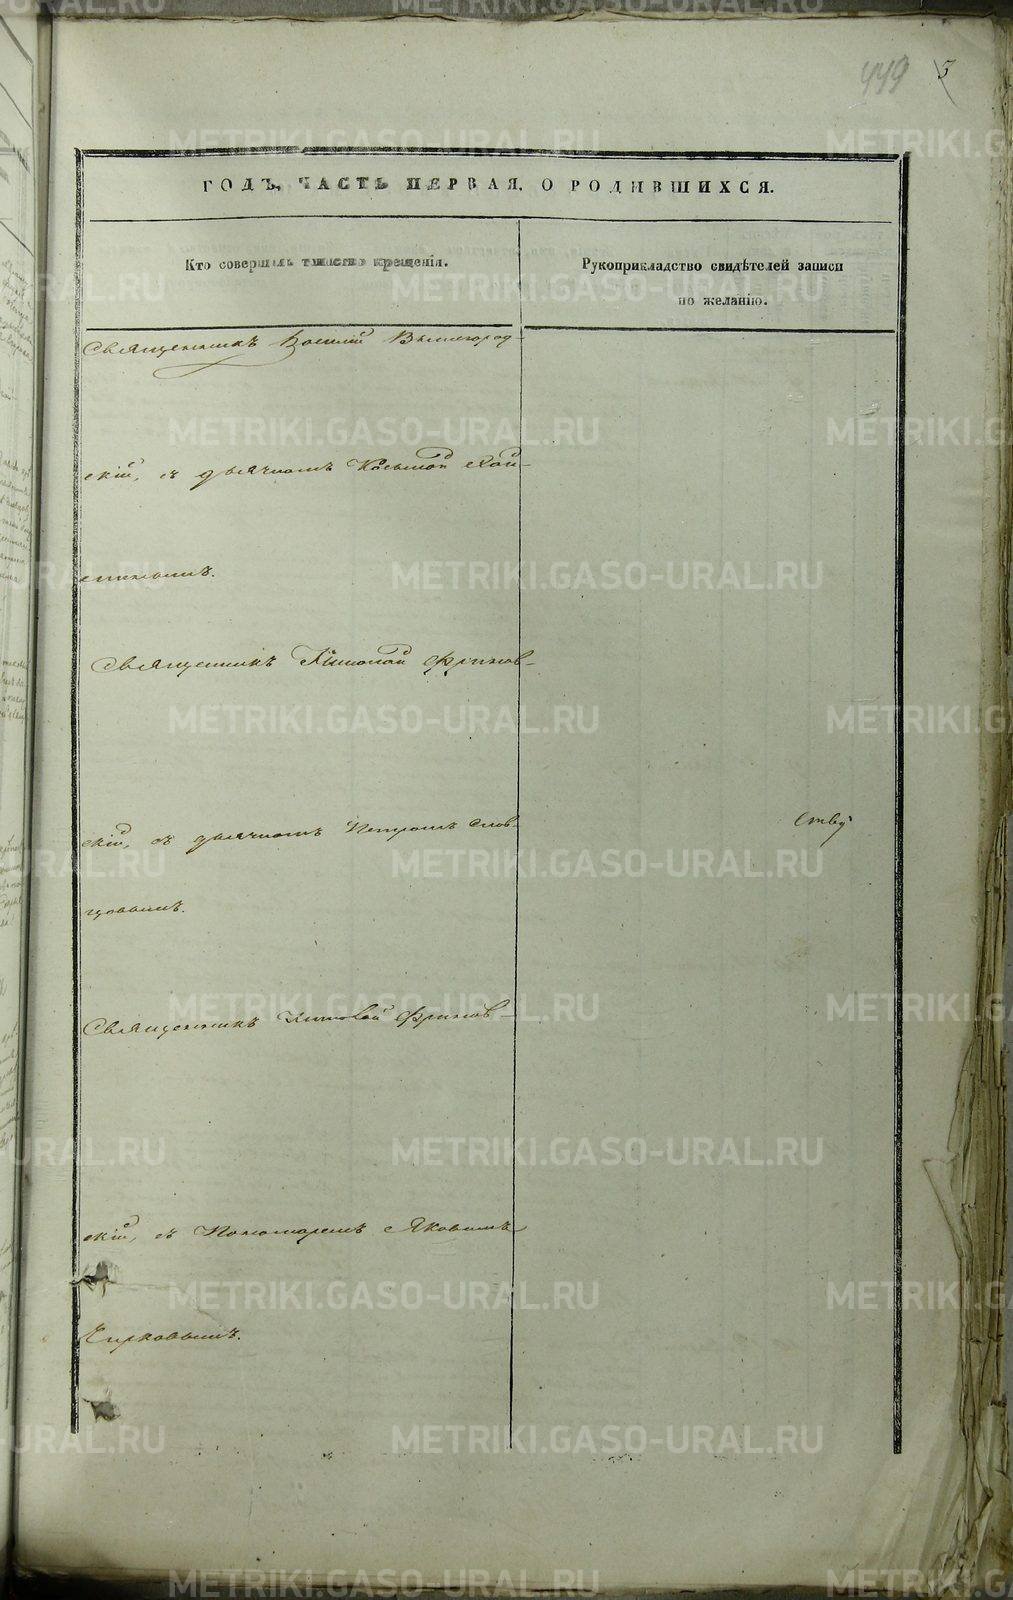 449 5
ГОДЪ, ЧАСТЬ ПЕРВАЯ, О РОДИВШИХСЯ.
Кто совершалъ таинство крещенія.
Рукоприкладство свидѣтелей записи
по желанію.
Священникъ Василій Вышегород-
скій, съ дьячкомъ Косьмой
Священникъ Николай Фринов-
скій, съ дьячкомъ Петромъ Слов-
цовымъ.
Священникъ Николай Фринов-
скій, съ Пономаремъ Яковымъ
Чирковымъ.
METRIKI.GASO-URAL.RU